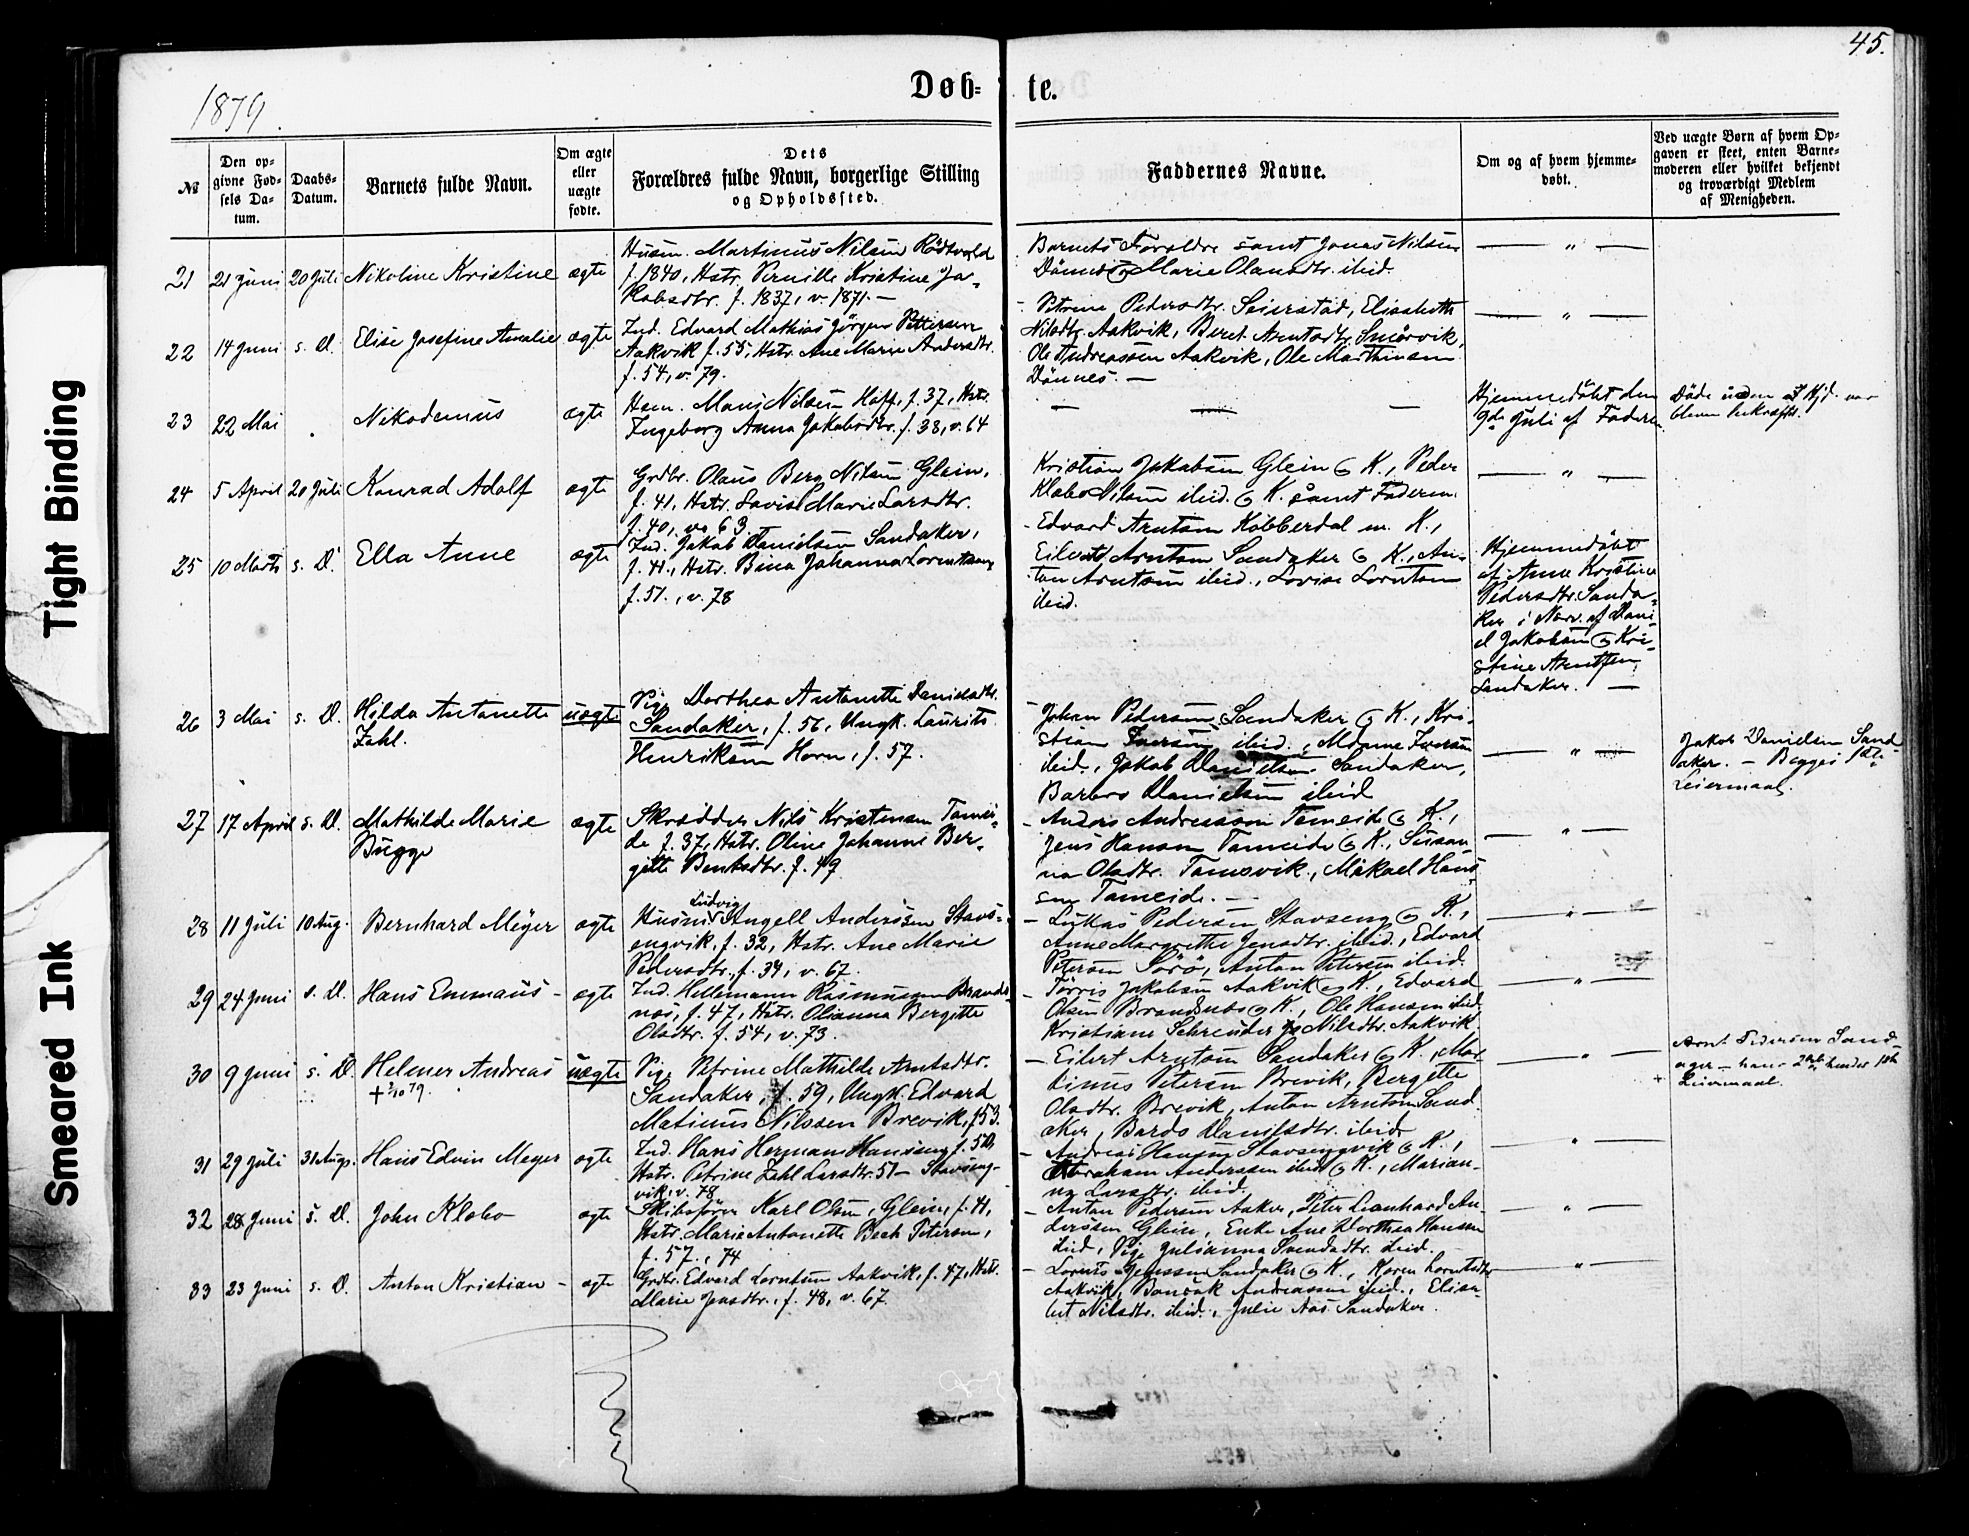 45.
1879.
Døb- te.
№
Den op-
givne Fød-
sels Da-
tum.
Daabs-
Datum.
Barnets fulde Navn.
Om ægte
eller
uægte
fødte.
Dets
Forældres fulde Navn, borgerlige Stilling
og Opholdssted.
Faddernes Navne.
Om og af hvem hjemme-
døbt.
Ved uægte Børn af hvem Op-
gaven er skeet, enten Barne-
moderen eller hvilket bekjendt
og troværdigt Medlem
af Menigheden.
21 21 Juni 20 Juli Nikoline Kristine ægte
Husm. Martinus Nilsen Rødtvold
f. 1840, Hstr. Pernille Kristine Ja-
kobsdtr. f. 1837, v. 1871. —
Barnets Forældre samt Jonas Nilsen
Dønnes og Marie Olausdtr. ibid.
— " —
22 14 Juni s. D. Elise Josefine Amalie ægte
Ind. Edvard Mathias Jørgen Pettersen
Aakvik f. 55, Hstr. Ane Marie Andersdtr.
f. 54, v. 79.
- Petrine Pedersdtr. Seierstad, Elisabeth
Nilsdtr. Aakvik, Beret Arntsdtr. Smørvik,
Ole Andreassen Aakvik, Ole Marthinsen
Dønnes. —
— " —
23 22 Mai Nikodemus ægte
Hsm. Mons Nilsen Hoff, f. 37, Hstr.
Ingeborg Anna Jakobsdtr. f. 38, v. 64
— — —
Hjemmedøbt den
9de Juli af Faderen
Døde uden at Hjd. var
bleven bekræftet.
24 5 April 20 Juli Konrad Adolf ægte
Grdbr. Olaus Berg Nilsen Glein,
f. 41, Hstr. Lovise Marie Larsdtr.
f. 40, v. 63
Kristian Jakobsen Glein og K., Peder
Klæbo Nilsen ibid. og K. samt Faderen.
— " —
25 10 Marts s. D. Ella Anne ægte
Ind. Jakob Danielsen Sandaker,
f. 41, Hstr. Bina Johanna Lorntsen,
f. 51., v. 78
- Edvard Arntsen Kobberdal m. K.,
Eilert Arntsen Sandaker og K., An-
ton Arntsen ibid., Lovise Lorntsen
ibid.
Hjemmedøbt
af Anne Kristine
Pedersdtr. Sanda-
ker i Nærv. af Dani-
el Jakobsen og Kri-
stine Arntsen
Sandaker. —
26 3 Mai s. D. Hilda Antonette uægte
Zahl.
Pige Dorthea Antonette Danielsdtr.
Sandaker, f. 56, Ungk. Laurits
Henriksen Horn, f. 57.
- Johan Pedersen Sandaker og K., Kri-
stian Iversen ibid., Monne Iversen
ibid., Jakob Danielsen Sandaker,
Barbro Danielsen ibid
— " —
Jakob Danielsen Sand-
aker. — Begges 1ste
Leiermaal.
27 17 April s. D. Mathilde Marie ægte
Bugge
Skrædder Nils Kristensen Tamei-
de f. 37, Hstr. Oline Johanne Ber-
gitte Bentsdtr. f. 49
- Anders Andreassen Tameide og K.,
Jens Hansen Tameide og K., Susan-
na Olsdtr. Tamsvik, Mikael Hans-
sen Tameide. —
— " —
28 11 Juli 10 Aug. Bernhard Meyer ægte
Ludvig
Husmd. Angell Andersen Stavs-
engvik, f. 32, Hstr. Ane Marie
Pedersdtr., f. 34, v. 67.
- Lukas Pedersen Stavseng og K.,
Anne Margrethe Jensdtr. ibid., Edvard
Petersen Sørø, Anton Petersen ibid.
— " —
29 24 Juni s. D. Hans Emmaus - ægte
Ind. Hellemann Rasmussen Brands-
næs, f. 47, Hstr. Olianna Bergitte
Olsdtr. f. 54, v. 73.
- Tørris Jakobsen Aakvik og K., Edvard
Olsen Brandsnæs og K., Ole Hansen ibid.
Kristiane Schreuder Nilsdtr. Aakvik.
— " —
30 9 Juni s. D. Helmer Andreas uægte
+ 3/10 79.
Pige Petrine Mathilde Arntsdtr.
Sandaker, f. 59, Ungk. Edvard
Matinus Nilssen Brevik, f. 53.
- Eilert Arntsen Sandaker og K., Mar-
tinus Petersen Brevik, Bergitte
Olsdtr. Brevik, Anton Arntsen Sand-
aker, Bardo Danielsdtr. ibid.
— " —
Arnt Pedersen Sand-
ager — hans 2det, hendes 1ste
+ Leiermaal.
31 29 Juli 31 Aug. Hans Edvin Meyer ægte
Ind. Hans Herman Hansen, f. 50,
Hstr. Petrine Zahl Larsdtr. 51 — Stavseng-
vik, v. 78
- Andreas Hansen Stavsengvik og K.,
Abraham Andersen ibid. og K., Marian-
na Larsdtr. ibid.
— " —
32 28 Juni s. D. John Klæbo ægte
Skibsfører Karl Olsen, Glein, f. 41,
Hstr. Marie Antonette Bech Petersen,
f. 57., 74
- Anton Pedersen Aaker, Peter Leonhard An-
dersen Glein, Enke Ane Dorthea Hansen
ibid, Pige Julianna Svendsdtr. ibid.
— " —
33 23 Juni s. D. Anton Kristian - ægte
Grdbr. Edvard Lorntsen Aakvik, f. 47, Hstr.
Marie Jensdtr., f. 48, v. 67.
- Lornts Jenssen Sandaker og K., Karen Lorntsdtr.
Aakvik, Bonsak Andreassen ibid., Elisa-
bet Nilsdtr. ibid., Julie Aas Sandaker.
— " —
Tight Binding
Smeared Ink